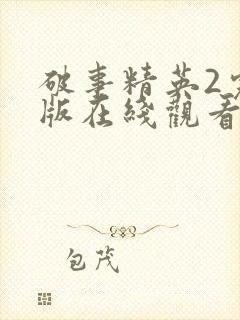 破事精英2
版在綫觀看
包茂